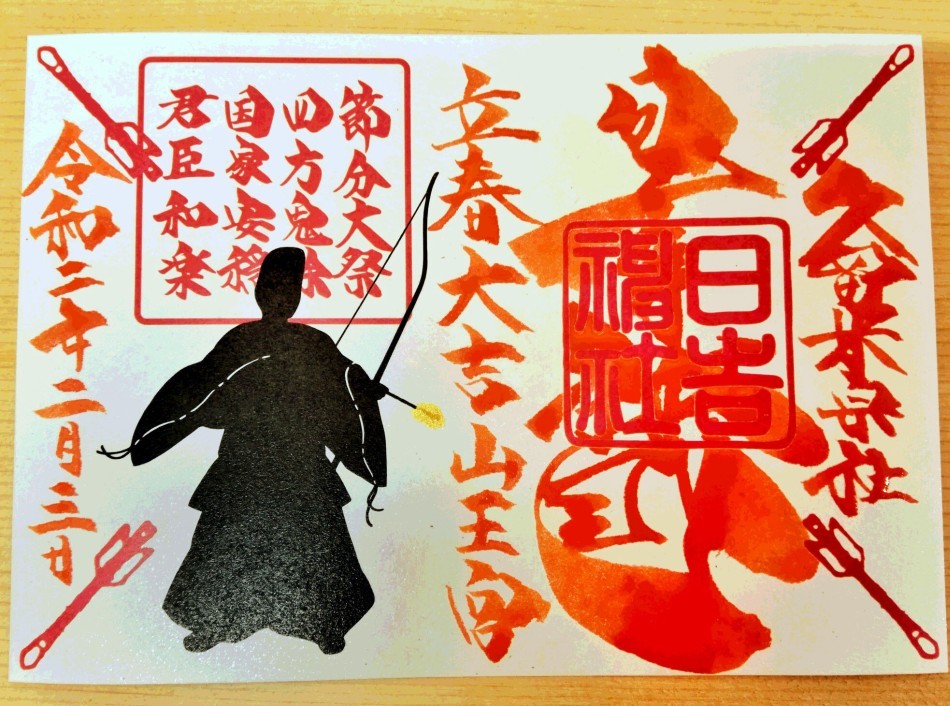 久留米宗社
日吉
神社
立春大吉山王宮
節分大祭
四方鬼除
国家安穏
君臣和楽
令和二年二月三日